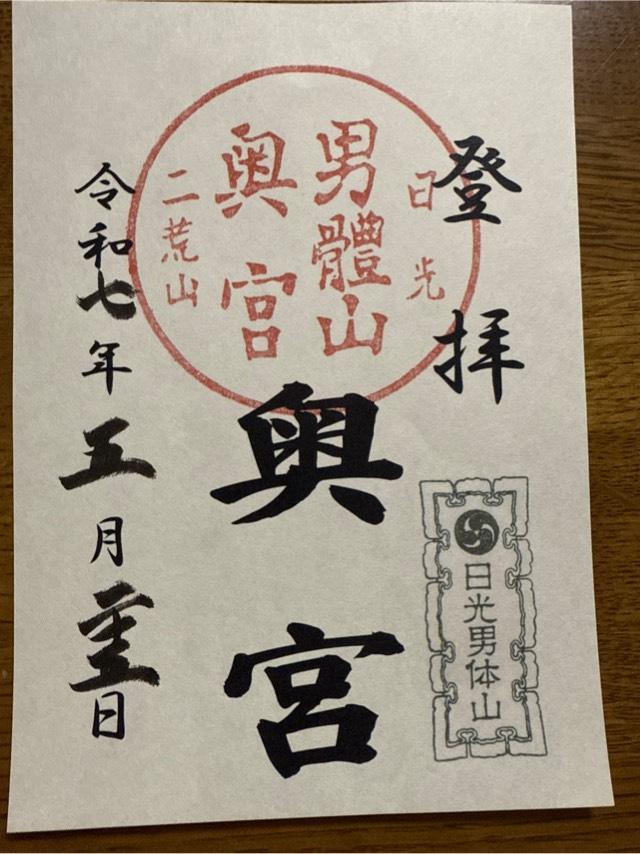 登拝
日光
男體山
奥宮
二荒山
奥宮
日光男体山
令和七年五月
日